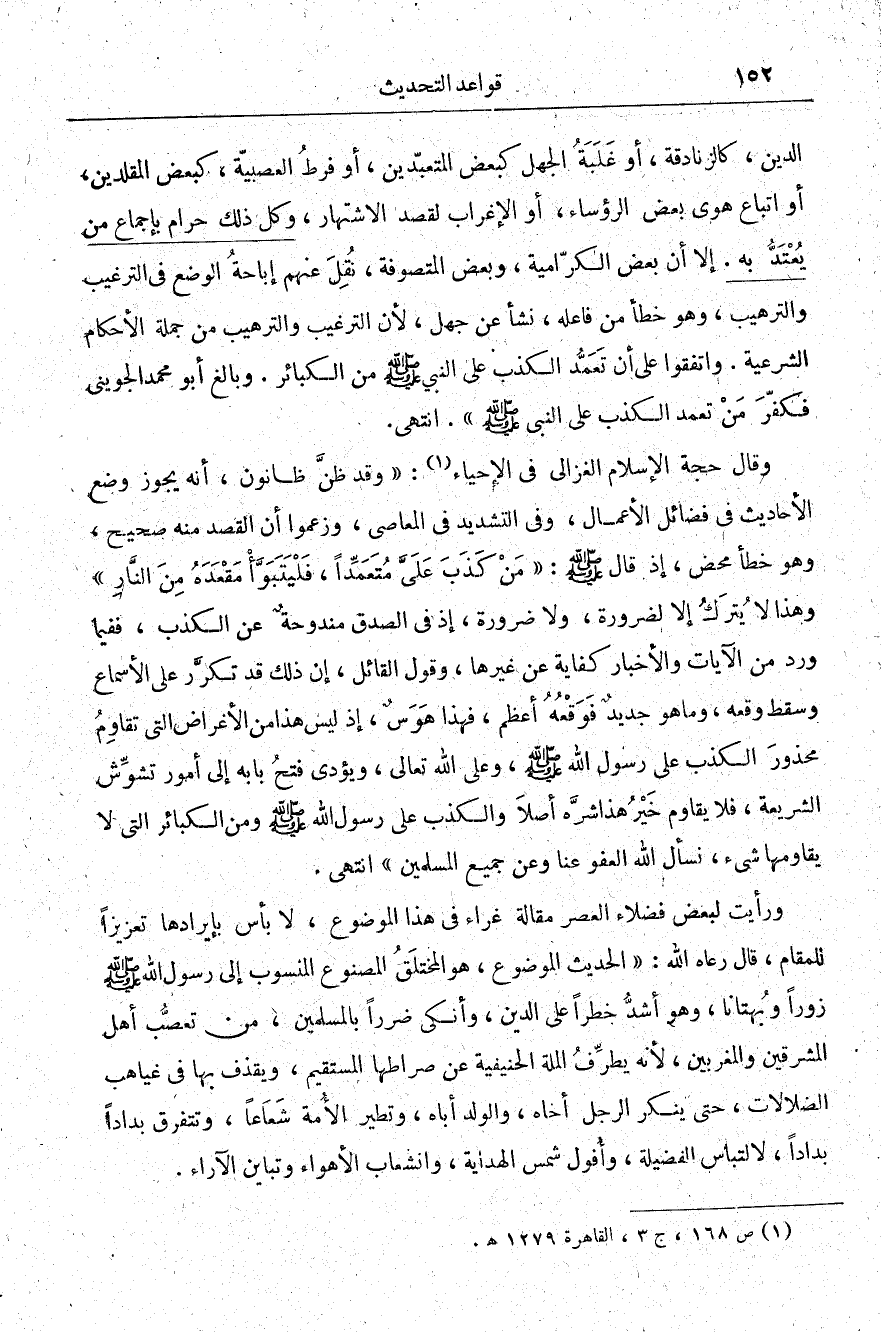 ١٥٢
قواعد التحديث
الدين ، كالزنادقة ، أو غَلَبَةُ الجهل كبعض المتعبّدين ، أو فرطُ العصبيّة ، كبعض المقلدين،
أو اتباع هوى بعض الرؤساء، أو الإغراب لقصد الاشتهار ، وكل ذلك حرام بإجماع من
يُعْتَدُّ به . إلا أن بعض الكرّامية ، وبعض المتصوفة ، نُقِلَ عنهم إباحةُ الوضع فى الترغيب
والترهيب ، وهو خطأ من فاعله ، نشأ عن جهل ، لأن الترغيب والترهيب من جملة الأحكام
الشرعية . واتفقوا على أن تَعَمَّدُ الكذب على النبي ﷺ من الكبائر . وبالغ أبو محمد الجوينى
فكفّرَ مَنْ تعمد الكذب على النبى ﷺ » . انتهى.
وقال حجة الإسلام الغزالى فى الإحياء(١) : « وقد ظنَّ ظانون ، أنه يجوز وضع
الأحاديث فى فضائل الأعمال ، وفى التشديد فى المعاصى ، وزعموا أن القصد منه صحيح ،
وهو خطأ محض ، إذ قال ﷺ : « مَنْ كَذَبَ عَلَىَّ مُتَعَمِّداً ، فَلْيَتَبَوَّأْ مَقْعَدَهُ مِنَ النَّارِ »
وهذا لا يُتركُ إلا لضرورة ، ولا ضرورة ، إذ فى الصدق مندوحةٌ عن الكذب ، ففيما
ورد من الآيات والأخبار كفاية عن غيرها ، وقول القائل ، إن ذلك قد تكرّر على الأسماع
وسقط وقعه ، وماهو جديدٌ فَوَقْعُهُ أعظم ، فهذا هَوَسٌ ، إذ ليس هذا من الأغراض التى تقاوِمُ
محذورَ الكذب على رسول الله ﷺ ، وعلى الله تعالى ، ويؤدى فتحُ بابه إلى أمور تشوِّش
الشريعة ، فلا يقاوم خَيْرُ هذا شرَّه أصلاً والكذب على رسول الله ﷺ ومن الكبائر التى لا
يقاومها شىء ، نسأل الله العفو عنا وعن جميع المسلمين » انتهى .
ورأيت لبعض فضلاء العصر مقالة غراء فى هذا الموضوع ، لا بأس بإيرادها تعزيزاً
للمقام ، قال رعاه الله : « الحديث الموضوع ، هو المختلَقُ المصنوع المنسوب إلى رسول الله ﷺ
زوراً وبُهتانا ، وهو أشدُّ خطراً على الدين ، وأنكى ضرراً بالمسلمين ، من تعصُّب أهل
المشرقين والمغربين ، لأنه يطرِّفُ الملة الحنيفية عن صراطها المستقيم ، ويقذف بها فى غياهب
الضلالات ، حتى ينكر الرجل أخاه ، والولد أباه ، وتطير الأُمة شَعَاعاً ، وتتفرق بداداً
بداداً ، لالتباس الفضيلة ، وأُفول شمس الهداية ، وانشعاب الأهواء وتباين الآراء .
(١) ص ١٦٨ ، ج ٣ ، القاهرة ١٢٧٩ ه .